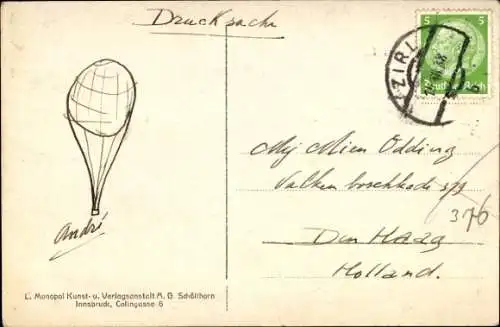 Drucksache
5 5
Deutsches Reich
ZIRL
Mej Mien Odding
Valkenboschkade
376
Den Haag
Holland.
André
L. Monopol Kunst- u. Verlagsanstalt A. G. Schöllhorn
Innsbruck, Colingasse 6